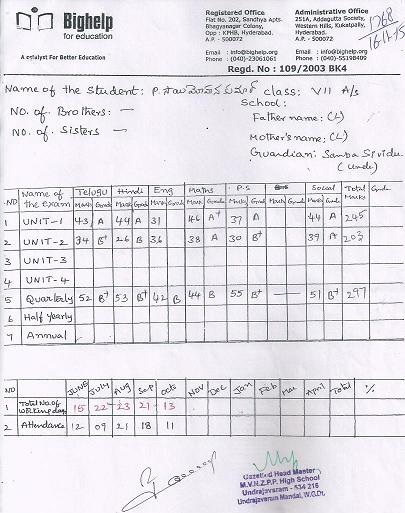 Bighelp
for education
A catalyst For Better Education
Registered Office
Flat No. 202, Sandhya Apts.
Bhagyanagar Colony,
Opp : KPHB, Hyderabad.
A.P. - 500072
Email : info@bighelp.org
Phone : 040-23061061
Administrative Office
251A, Addagutta Society,
Western Hills, Kukatpally,
Hyderabad.
A.P. - 500072
Email : info@bighelp.org
Phone : 040-55198409
1268
16-11-15
Regd. No : 109/2003 BK4
Name of the Student: P. class: VII A/s
NO. of Brothers: — School:
NO. of Sisters — Father name: (L)
Mother's name: (L)
Guardian: Samba Sivudu
(Uncle)
NO Name of the Exam Telugu Hindi Eng Maths P.S Social Total Marks Grade
Mark Grad Mark Grad Mark Grad Mark Grad Mark Grad Mark Grad Mark Grad
1 UNIT-1 43 A 44 A 31 46 A+ 37 A 44 A 245
2 UNIT-2 34 B+ 26 B 36 38 A 30 B+ 39 A 203
3 UNIT-3
4 UNIT-4
5 Quarterly 52 B+ 53 B+ 42 B 44 B 55 B+ — 51 B+ 297
6 Half yearly
7 Annual
NO JUNE JULY Aug Sep Octs Nov Dec Jan Feb Mar April Total %
1 Total No. of Working days 15 22 23 21 13
2 Attendance 12 09 21 18 11
Gazetted Head Master
M.V.N.Z.P.P. High School
Undrajavaram - 534 216
Undrajavaram Mandal, W.G.Dt.